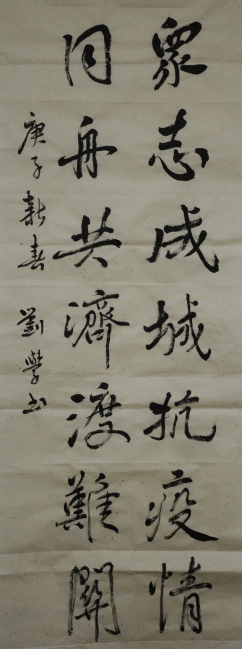 眾志成城抗疫情
同舟共濟渡難關
庚子新春 劉學書